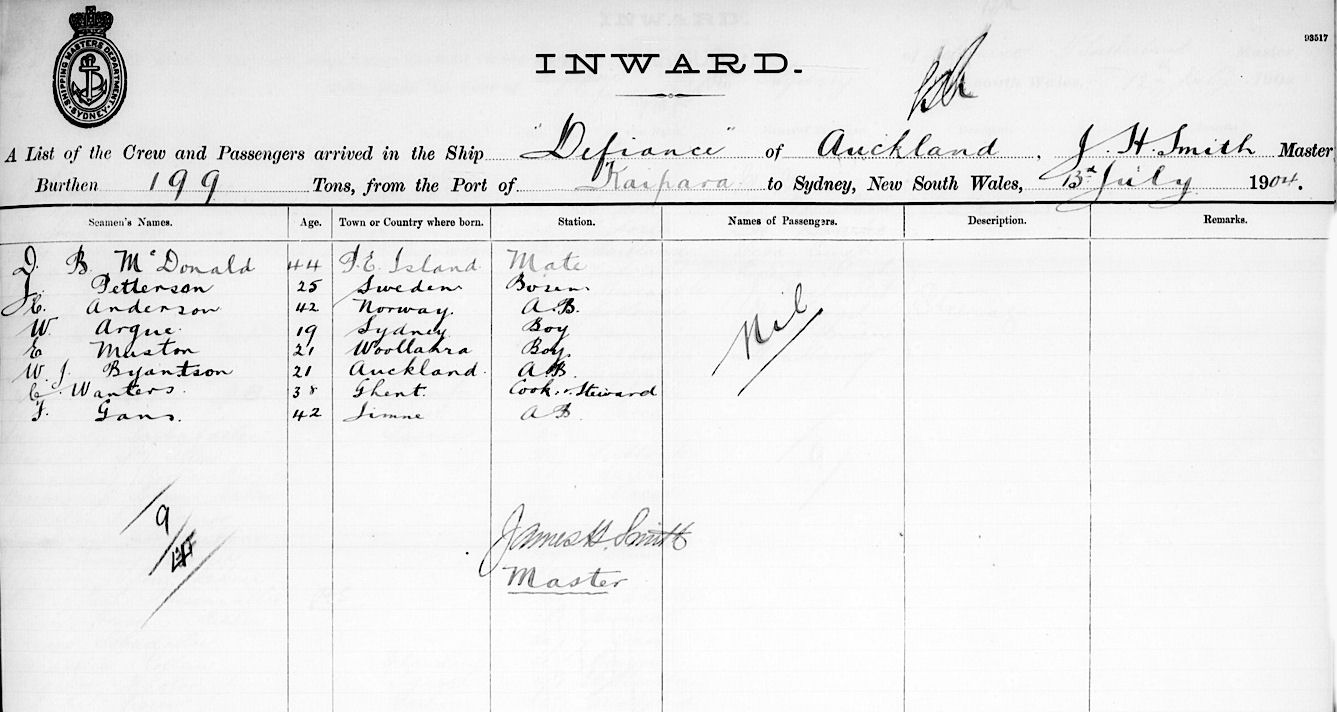 93517
SHIPPING MASTERS DEPARTMENT SYDNEY
INWARD.
A List of the Crew and Passengers arrived in the Ship "Defiance" of Auckland, J. H. Smith Master
Burthen 199 Tons, from the Port of Kaipara to Sydney, New South Wales, 13th July 1904.
Seamen's Names. Age. Town or Country where born. Station. Names of Passengers. Description. Remarks.
D. B. McDonald 44 P. E. Island Mate
J. Petterson 25 Sweden Bosen
C. Anderson 42 Norway. A.B.
W. Argue 19 Sydney Boy
E Muston 21 Woollahra Boy
W. J. Byantson 21 Auckland. AB
C. Wanters. 38 Ghent. Cook & Steward
F. Gans. 42 A B.
Nil
9
James H. Smith
Master